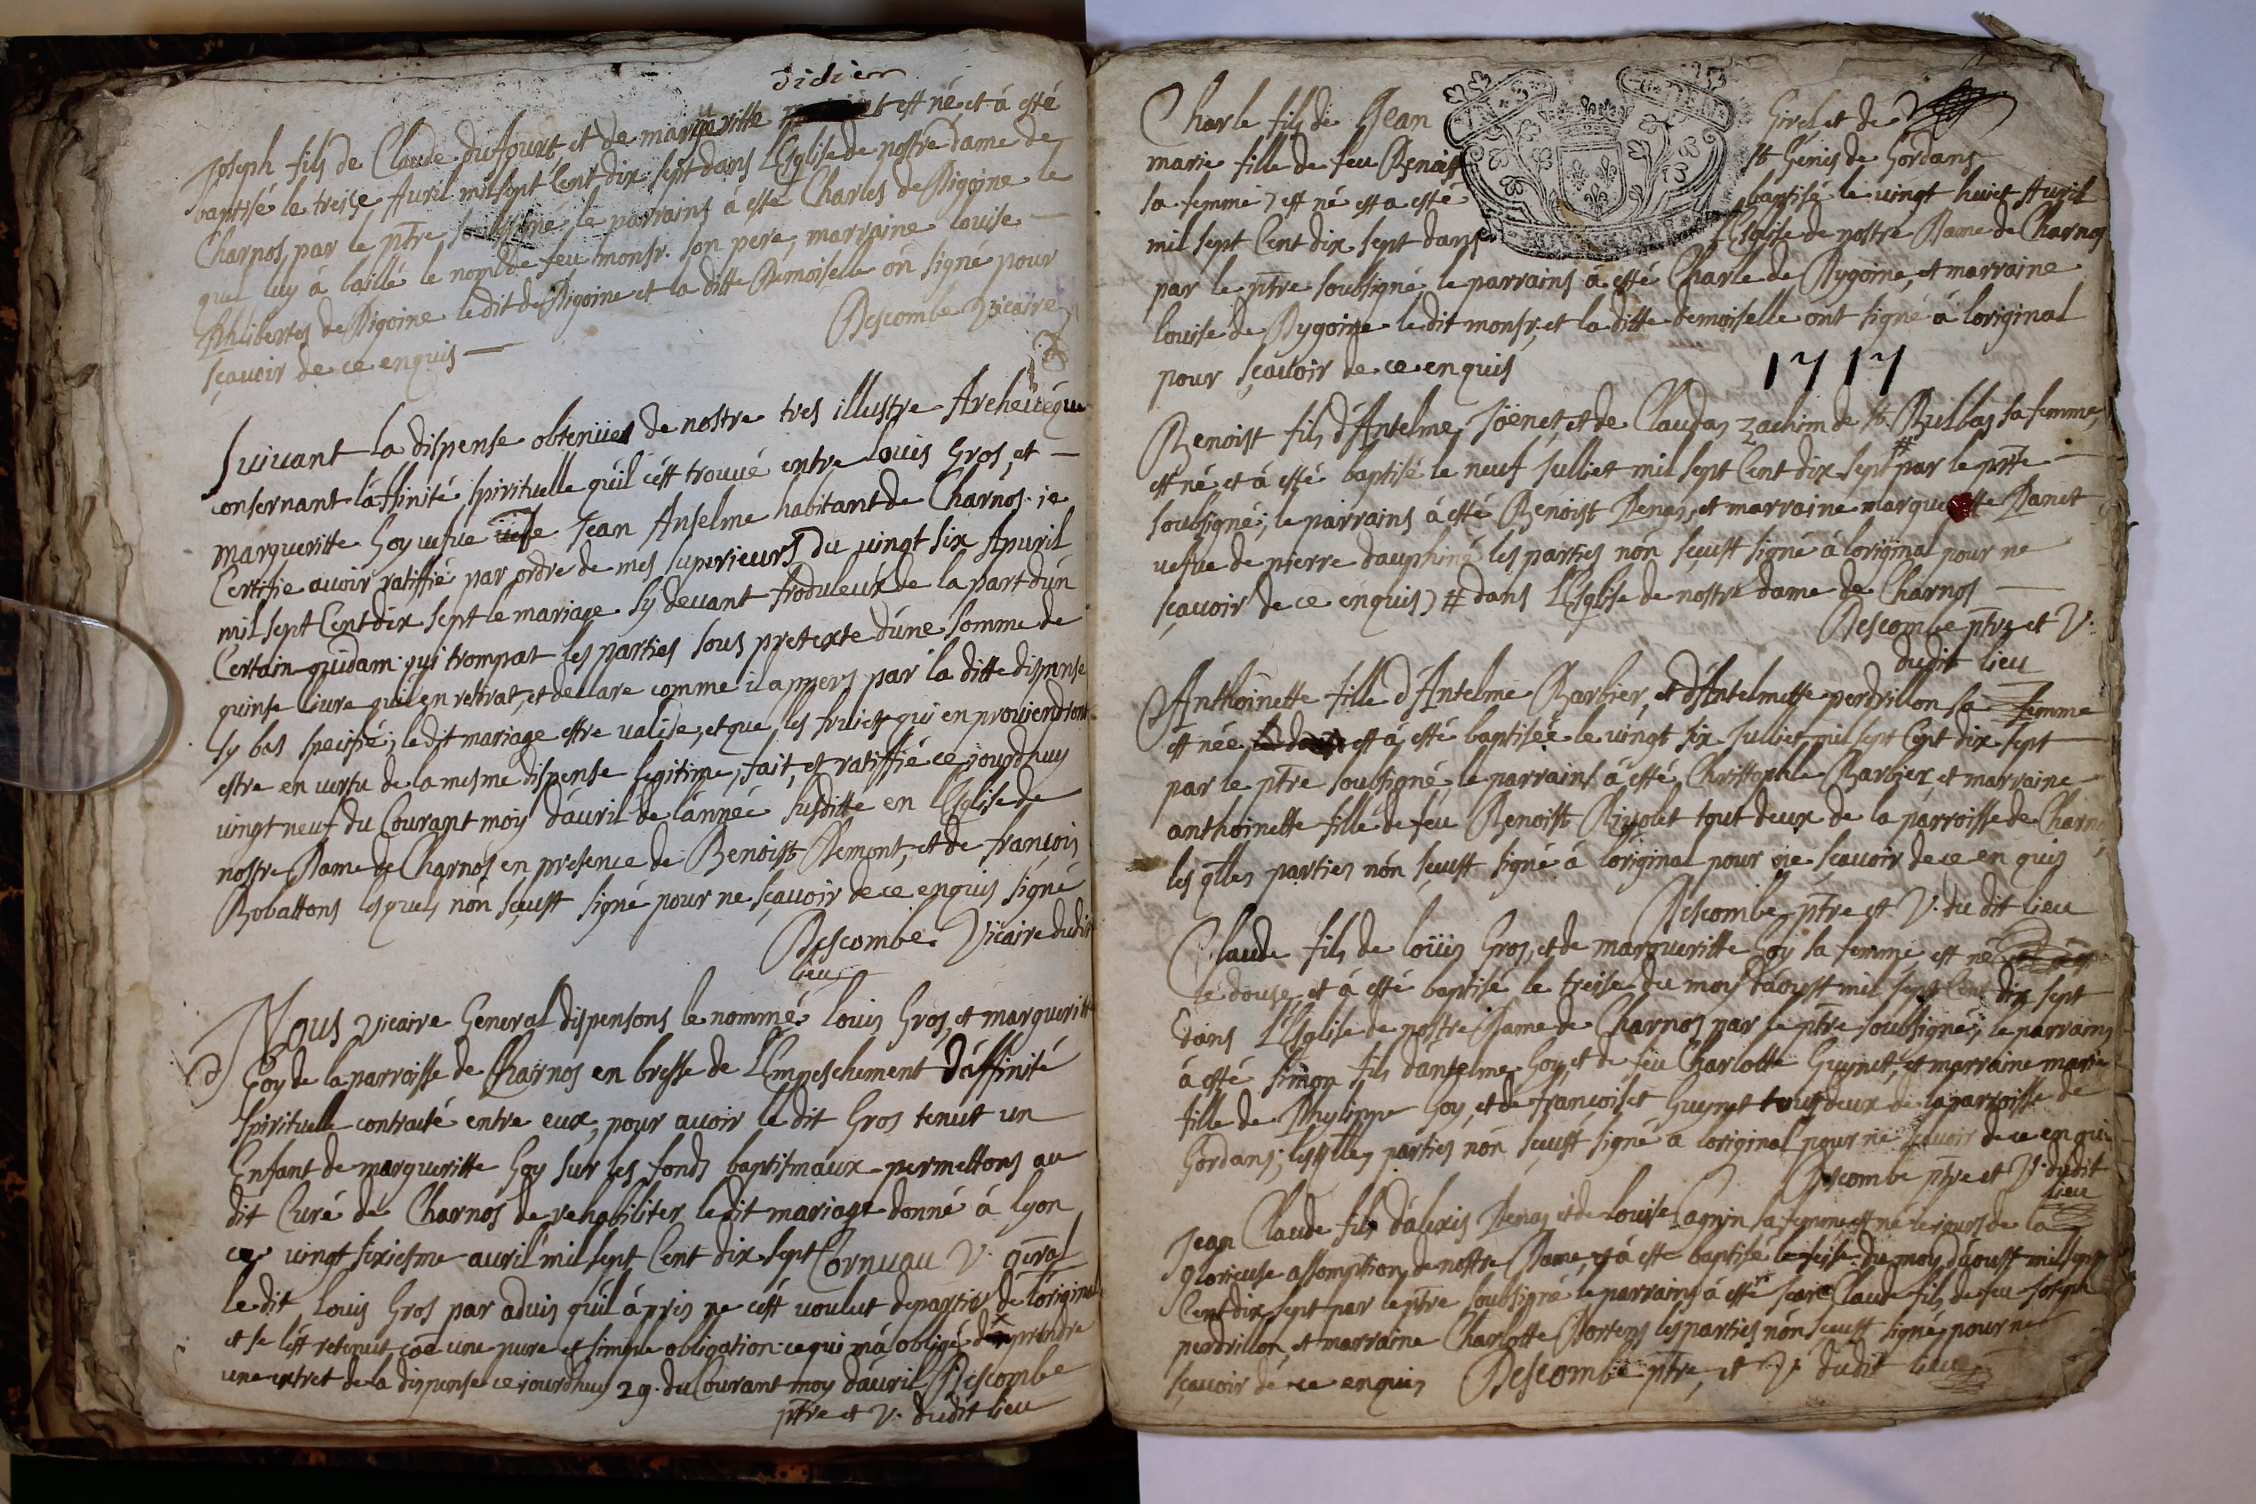 Didier
Joseph fils de Claude dufourt et de margueritte est né et à esté
baptisé le treise Auril mil sept Cent dix sept dans L'Esglise de nostre Dame de
Charnos, par le ptre soubsigné, le parrains à esté Charles de Rigoine le
quel luy à baillé le nom de feu monsr. son pere, marraine louise
Philibertes de Rigoine le dit de Rigoine et la ditte Demoiselle on signé pour
sçavoir de ce enquis Descombe Vicaire
Suiuant la dispense obtenües de nostre tres illustre Archeuéque
consernant l'affinité spirituelle qu'il c'est trouué entre louis Gros, et
margueritte Goy uefue Jean Anselme habitant de Charnos. ie
Certifie auoir ratiffié par ordre de mes superieurs Du uingt six Apuril
mil sept Cent dix sept le mariage sy deuant froduleux de la part d'un
Certain quidam qui trompat les parties sous pretexte d'une somme de
quinse liure qu'il en retirat, et declare comme il appers par la ditte dispense
sy bas specifié; le dit mariage estre ualide, et que les fruicts qui en prouiendront
estre en uertu de la mesme dispense legitime, fait, et ratiffié ce jourdhuy
uingt neuf du Courant moy d'auril de l'année susditte en l'Eglise de
nostre Dame de Charnos en presence de Benoist Remont, et de francois
Robattons lesquels nón sceust signé pour ne sçauoir de ce enquis signé
Descombe. Vicaire dudit
lieu
Nous Vicaire General dispensons le nommé louis Gros, et margueritte
Goy de la parroisse de Charnos en bresse de L'Empeschement D'affinité
Spirituelle contracté entre eux, pour auoir le dit Gros tenut un
Enfant de margueritte Goy sur les fonds baptismaux permettons au
dit Curé de Charnos de rehabiliter le dit mariage donné à lyon
ce uingt sixiesme auril mil sept Cent dix sept Cornuau V. gnral
le dit louis Gros par aduis qu'il à pris ne c'est voulut departir de l'original
et se l'est retenut, coe une pure et simple obligation: ce qui m'a obligé prendre
une extret de la dispense ce iourdhuy 29. du Courant moy d'auril Descombe
ptre et V. dudit lieu
Charle fils de Jean Girel et de
marie fille de feu Benoist St Génis de Gordans
sa femme est né est a esté baptisé le vingt huict Auril
mil sept Cent dix sept dans l'Esglise de nostre Dame de Charnos
par le ptre soubsigné, le parrains à esté Charle de Rygoine, et marraine
louise de Rygoine le dit monsr. et la ditte demoiselle ont signé á loriginal
pour sçauoir de ce enquis
1717
Benoist fils d'Antelme Joënet, et de Claudas Zachim de St Bulbas sa femme,
est né et à esté baptisé le neuf Julliet mil sept Cent dix sept # par le ptre
soubsigné; le parrains à esté Benoist Benas, et marraine margueritte Danet
uefue de pierre dauphiné les parties nón sçeust signé á loriginal pour ne
sçauoir de ce enquis) # dans L'Esglise de nostre dame de Charnos
Descombe ptre et V.
dudit lieu
Anthoinette fille d'Antelme Barbier, et d'Antelmette perdrillon sa femme
est née est à esté baptisée le uingt six Julliet mil sept Cent dix sept
par le ptre soubsigné le parrains à esté Christophle Barbier, et marraine
anthoinette fille de feu Benoist Riuolet tout deux de la parroisse de Charnos
les qlles parties nón sçeust signé á loriginal pour ne sçauoir de ce en quis
Descombe ptre et V. du dit lieu
Claude fils de loüis Gros, et de margueritte Goy sa femme est né
le douse, et à esté baptisé le treise du moy d'aoust mil sept Cent dix sept
dans L'Esglise de nostre Dame de Charnos par le ptre soubsigné; le parrains
à esté simon fils dantelme Goy, et de feu Charlotte Guynet, et marraine marie
fille de Phylippe Goy, et de francoise Guynet tout deux de la parroisse de
Gordans; les qlles parties nón sçeust signé a loriginal pour ne sçauoir de ce enquis
Descombe ptre et V. dudit
lieu
Jean Claude fils d'alexis Benas et de louise Cagnin sa femme est né le iours de la
glorieuse assomption de nostre Dame, et à esté baptisé le seise du moy d'aoust mil sept
Cent dix sept par le ptre soubsigné le parrains à esté Jean Claude fils de feu Joseph
perdrillon, et marraine Charlotte Bortens les parties nón sceust signé pour ne
sçauoir de ce enquis Descombe ptre, et V. dudit lieu